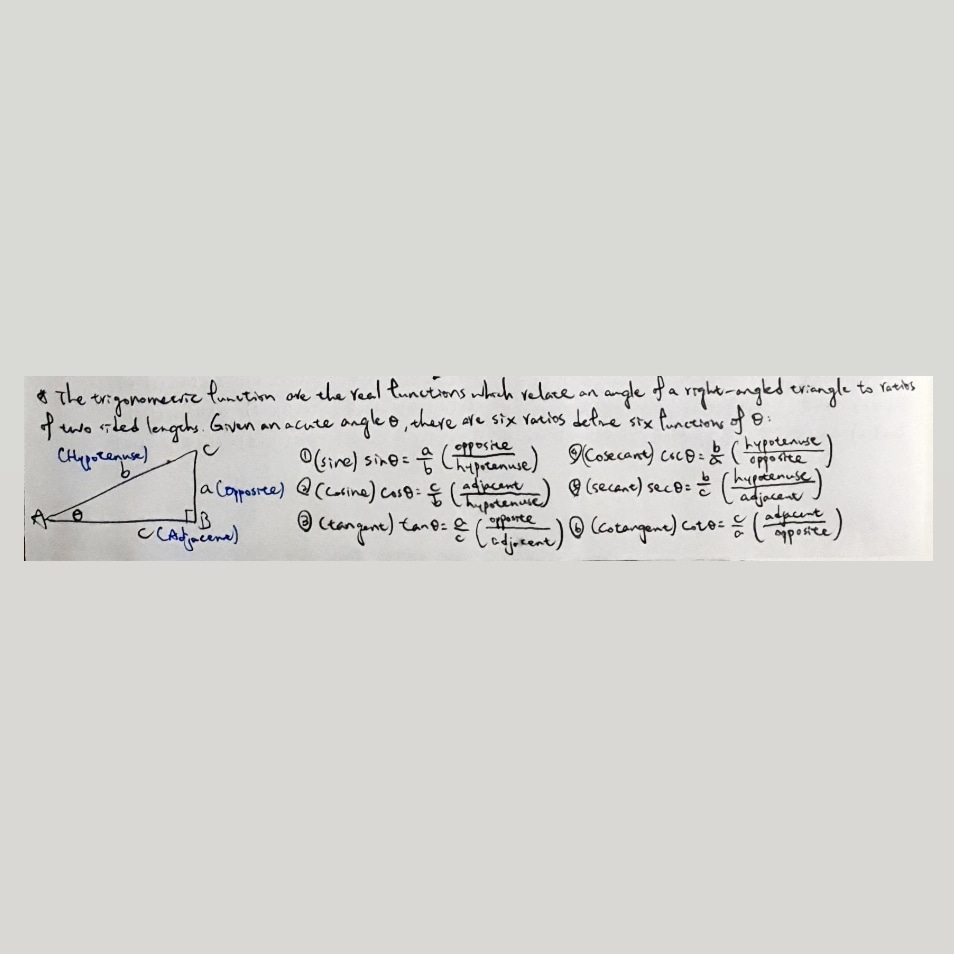 * The trigonometric function are the real functions which relate an angle of a right-angled triangle to ratios
of two sided lengths. Given an acute angle θ, there are six ratios define six functions of θ:
(Hypotenuse)
b
C
a (opposite)
A
θ
B
c (Adjacent)
① (sine) sinθ = a/b (opposite/hypotenuse)
② (cosine) cosθ = c/b (adjacent/hypotenuse)
③ (tangent) tanθ = a/c (opposite/adjacent)
④ (Cosecant) cscθ = b/a (hypotenuse/opposite)
⑤ (secant) secθ = b/c (hypotenuse/adjacent)
⑥ (Cotangent) cotθ = c/a (adjacent/opposite)